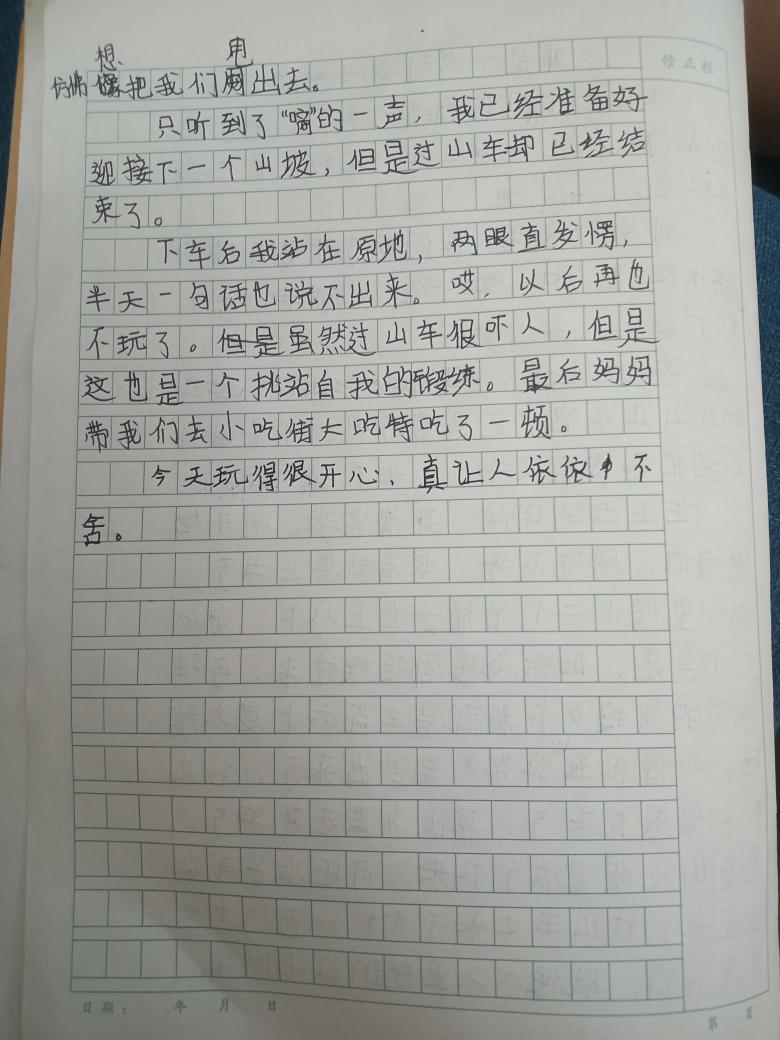 想 甩
修正栏
仿佛把我们甩出去。
只听到了“嘀”的一声，我已经准备好
迎接下一个山坡，但是过山车却已经结
束了。
下车后我站在原地，两眼直发愣，
半天一句话也说不出来。哎，以后再也
不玩了。但是虽然过山车狠吓人，但是
这也是一个挑站自我的锻练。最后妈妈
带我们去小吃街大吃特吃了一顿。
今天玩得很开心，真让人依依不
舍。
日期： 年 月 日
第 页